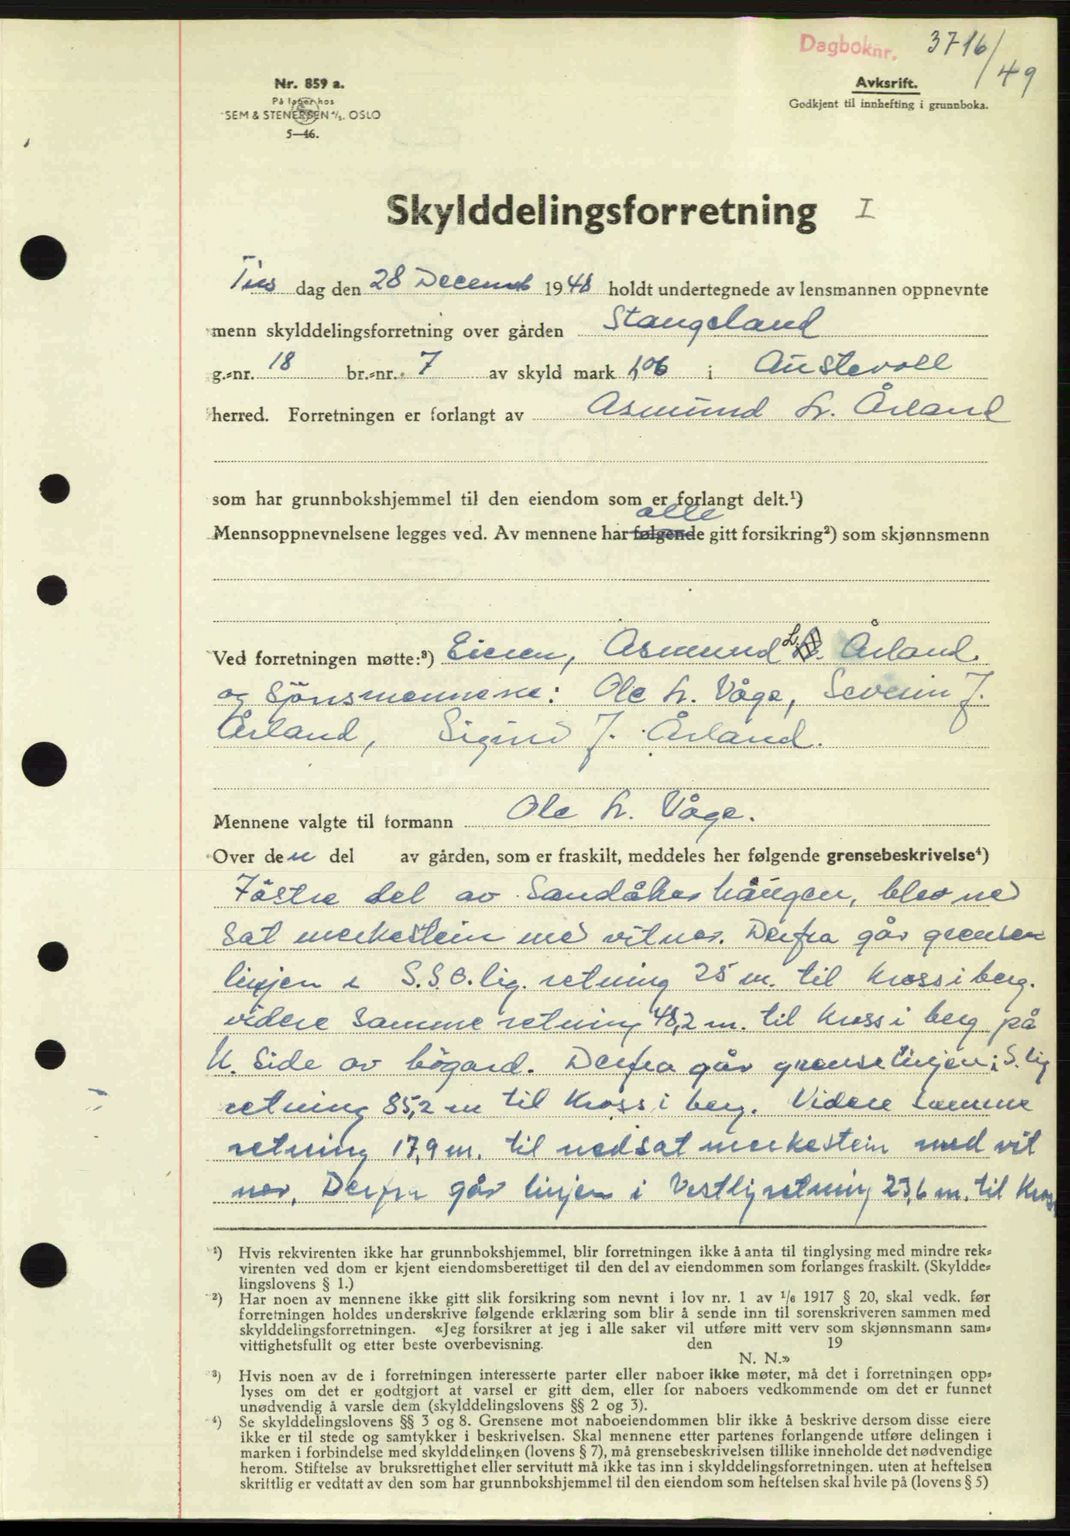 Dagboknr. 3716/49
Nr. 859 a.
På lager hos
SEM & STENERSEN A/S. OSLO
5—46.
Avksrift.
Godkjent til innhefting i grunnboka.
Skylddelingsforretning I
Tirs dag den 28 Decemb 1948 holdt undertegnede av lensmannen oppnevnte
menn skylddelingsforretning over gården Stangeland
g.-nr. 18 br.-nr. 7 av skyld mark 1,06 i Austevoll
herred. Forretningen er forlangt av Asmund L. Årland
som har grunnbokshjemmel til den eiendom som er forlangt delt.¹)
alle
Mennsoppnevnelsene legges ved. Av mennene har følgende gitt forsikring²) som skjønnsmenn
Ved forretningen møtte:³) Eieren, Asmund L. Årland.
og Sjönsmennene: Ole L. Våge, Severin J.
Årland, Sigurd J. Årland.
Mennene valgte til formann Ole L. Våge.
Over den del av gården, som er fraskilt, meddeles her følgende grensebeskrivelse⁴)
Föstre del av Sandåkerhaugen, blev ned
sat merkestein med vitner. Derfra går grense
linjen i S.S.O.lig. retning 25 m. til kross i berg.
videre samme retning 48,2 m. til kross i berg på
N. Side av bögard. Derfra går grenselinjen i S.lig
retning 85,2 m til kross i berg. Videre samme
retning 17,9 m. til nedsat merkestein med vit
ner. Derfra går linjen i Vestlig retning 23,6 m. til Kross
¹) Hvis rekvirenten ikke har grunnbokshjemmel, blir forretningen ikke å anta til tinglysing med mindre rek-
virenten ved dom er kjent eiendomsberettiget til den del av eiendommen som forlanges fraskilt. (Skyldde-
lingslovens § 1.)
²) Har noen av mennene ikke gitt slik forsikring som nevnt i lov nr. 1 av 1/6 1917 § 20, skal vedk. før
forretningen holdes underskrive følgende erklæring som blir å sende inn til sorenskriveren sammen med
skylddelingsforretningen. «Jeg forsikrer at jeg i alle saker vil utføre mitt verv som skjønnsmann sam-
vittighetsfullt og etter beste overbevisning. den 19
N. N.»
³) Hvis noen av de i forretningen interesserte parter eller naboer ikke møter, må det i forretningen opp-
lyses om det er godtgjort at varsel er gitt dem, eller for naboers vedkommende om det er funnet
unødvendig å varsle dem (skylddelingslovens §§ 2 og 3).
⁴) Se skylddelingslovens §§ 3 og 8. Grensene mot naboeiendommen blir ikke å beskrive dersom disse eiere
ikke er til stede og samtykker i beskrivelsen. Skal mennene etter partenes forlangende utføre delingen i
marken i forbindelse med skylddelingen (lovens § 7), må grensebeskrivelsen tillike inneholde det nødvendige
herom. Stiftelse av bruksrettighet eller servitutt må ikke tas inn i skylddelingsforretningen. uten at heftelsen
skriftlig er vedtatt av den som har grunnbokshjemmel til den eiendom som heftelsen skal hvile på (lovens § 5)